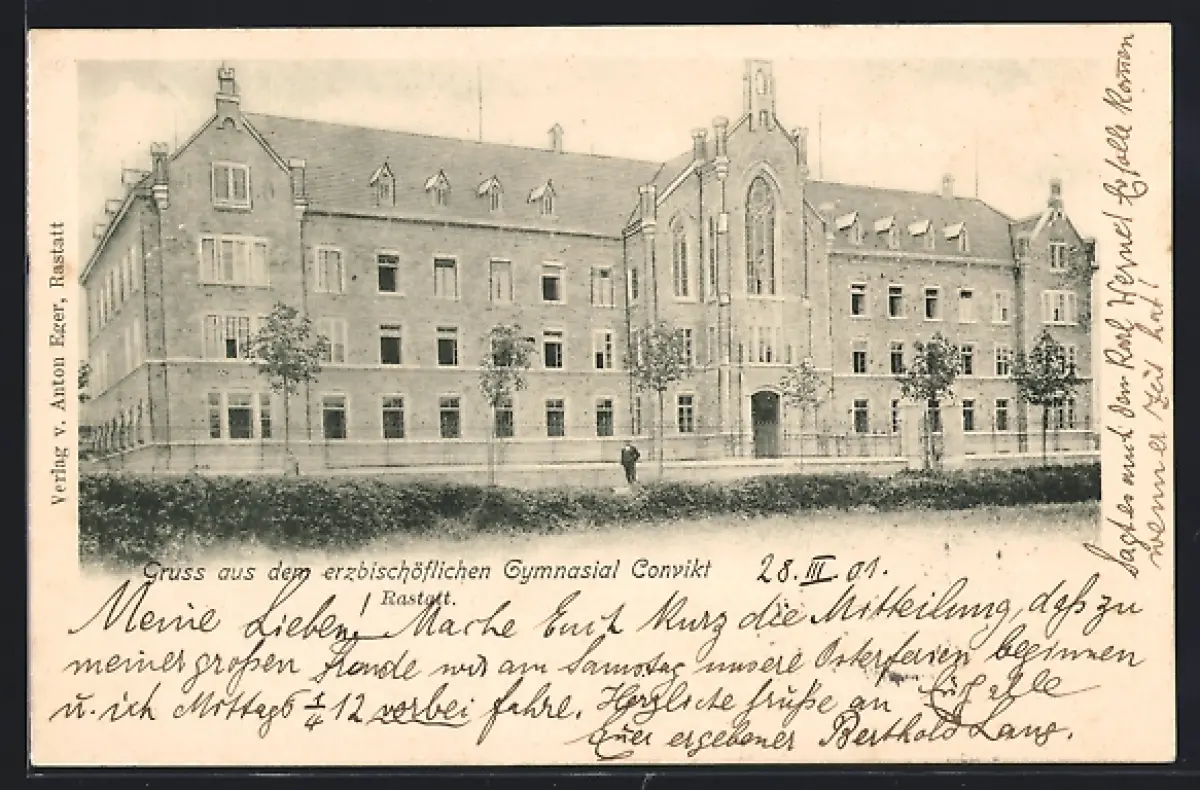 Verlag v. Anton Eger, Rastatt
Gruss aus dem erzbischöflichen Gymnasial Convikt
Rastatt.
28. III. 01.
Meine Lieben! Mache Euch kurz die Mitteilung, daß zu
meiner großen Freude wir am Samstag unsere Osterferien beginnen
u. ich Mittags 1/4 12 vorbei fahre. Herzliche Grüße an Euch alle
Euer ergebener Berthold Lang.
Sagt es auch dem Karl Werner Er solle kommen
wenner Zeit hat!